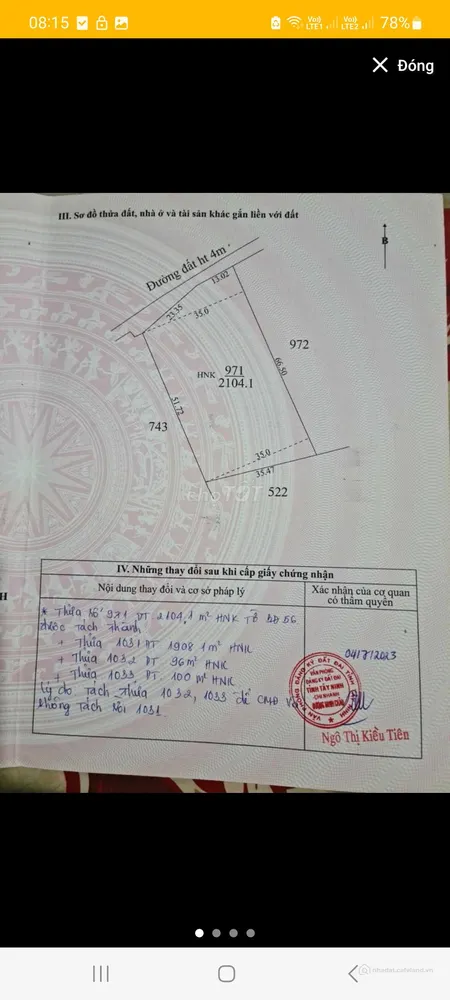 08:15
Vo)) LTE1 Vo)) LTE2 78%
Đóng
III. Sơ đồ thửa đất, nhà ở và tài sản khác gắn liền với đất
B
Đường đất ht 4m
13.02
23.35
35.0
972
HNK 971
2104.1
66.50
51.72
743
35.0
35.47
522
choTỐT
H
IV. Những thay đổi sau khi cấp giấy chứng nhận
Nội dung thay đổi và cơ sở pháp lý
Xác nhận của cơ quan có thẩm quyền
* Thửa số 971 DT 2104,1 m² HNK Tờ BĐ 56
được Tách Thành
+ Thửa 1031 DT 1908,1 m² HNK
+ Thửa 1032 DT 96 m² HNK
+ Thửa 1033 DT 100 m² HNK
Lý do Tách Thửa 1032, 1033 để CMĐ
không Tách
04/7/2023
VĂN PHÒNG
ĐĂNG KÝ ĐẤT ĐAI
TỈNH TÂY NINH
CHI NHÁNH
Ngô Thị Kiều Tiên